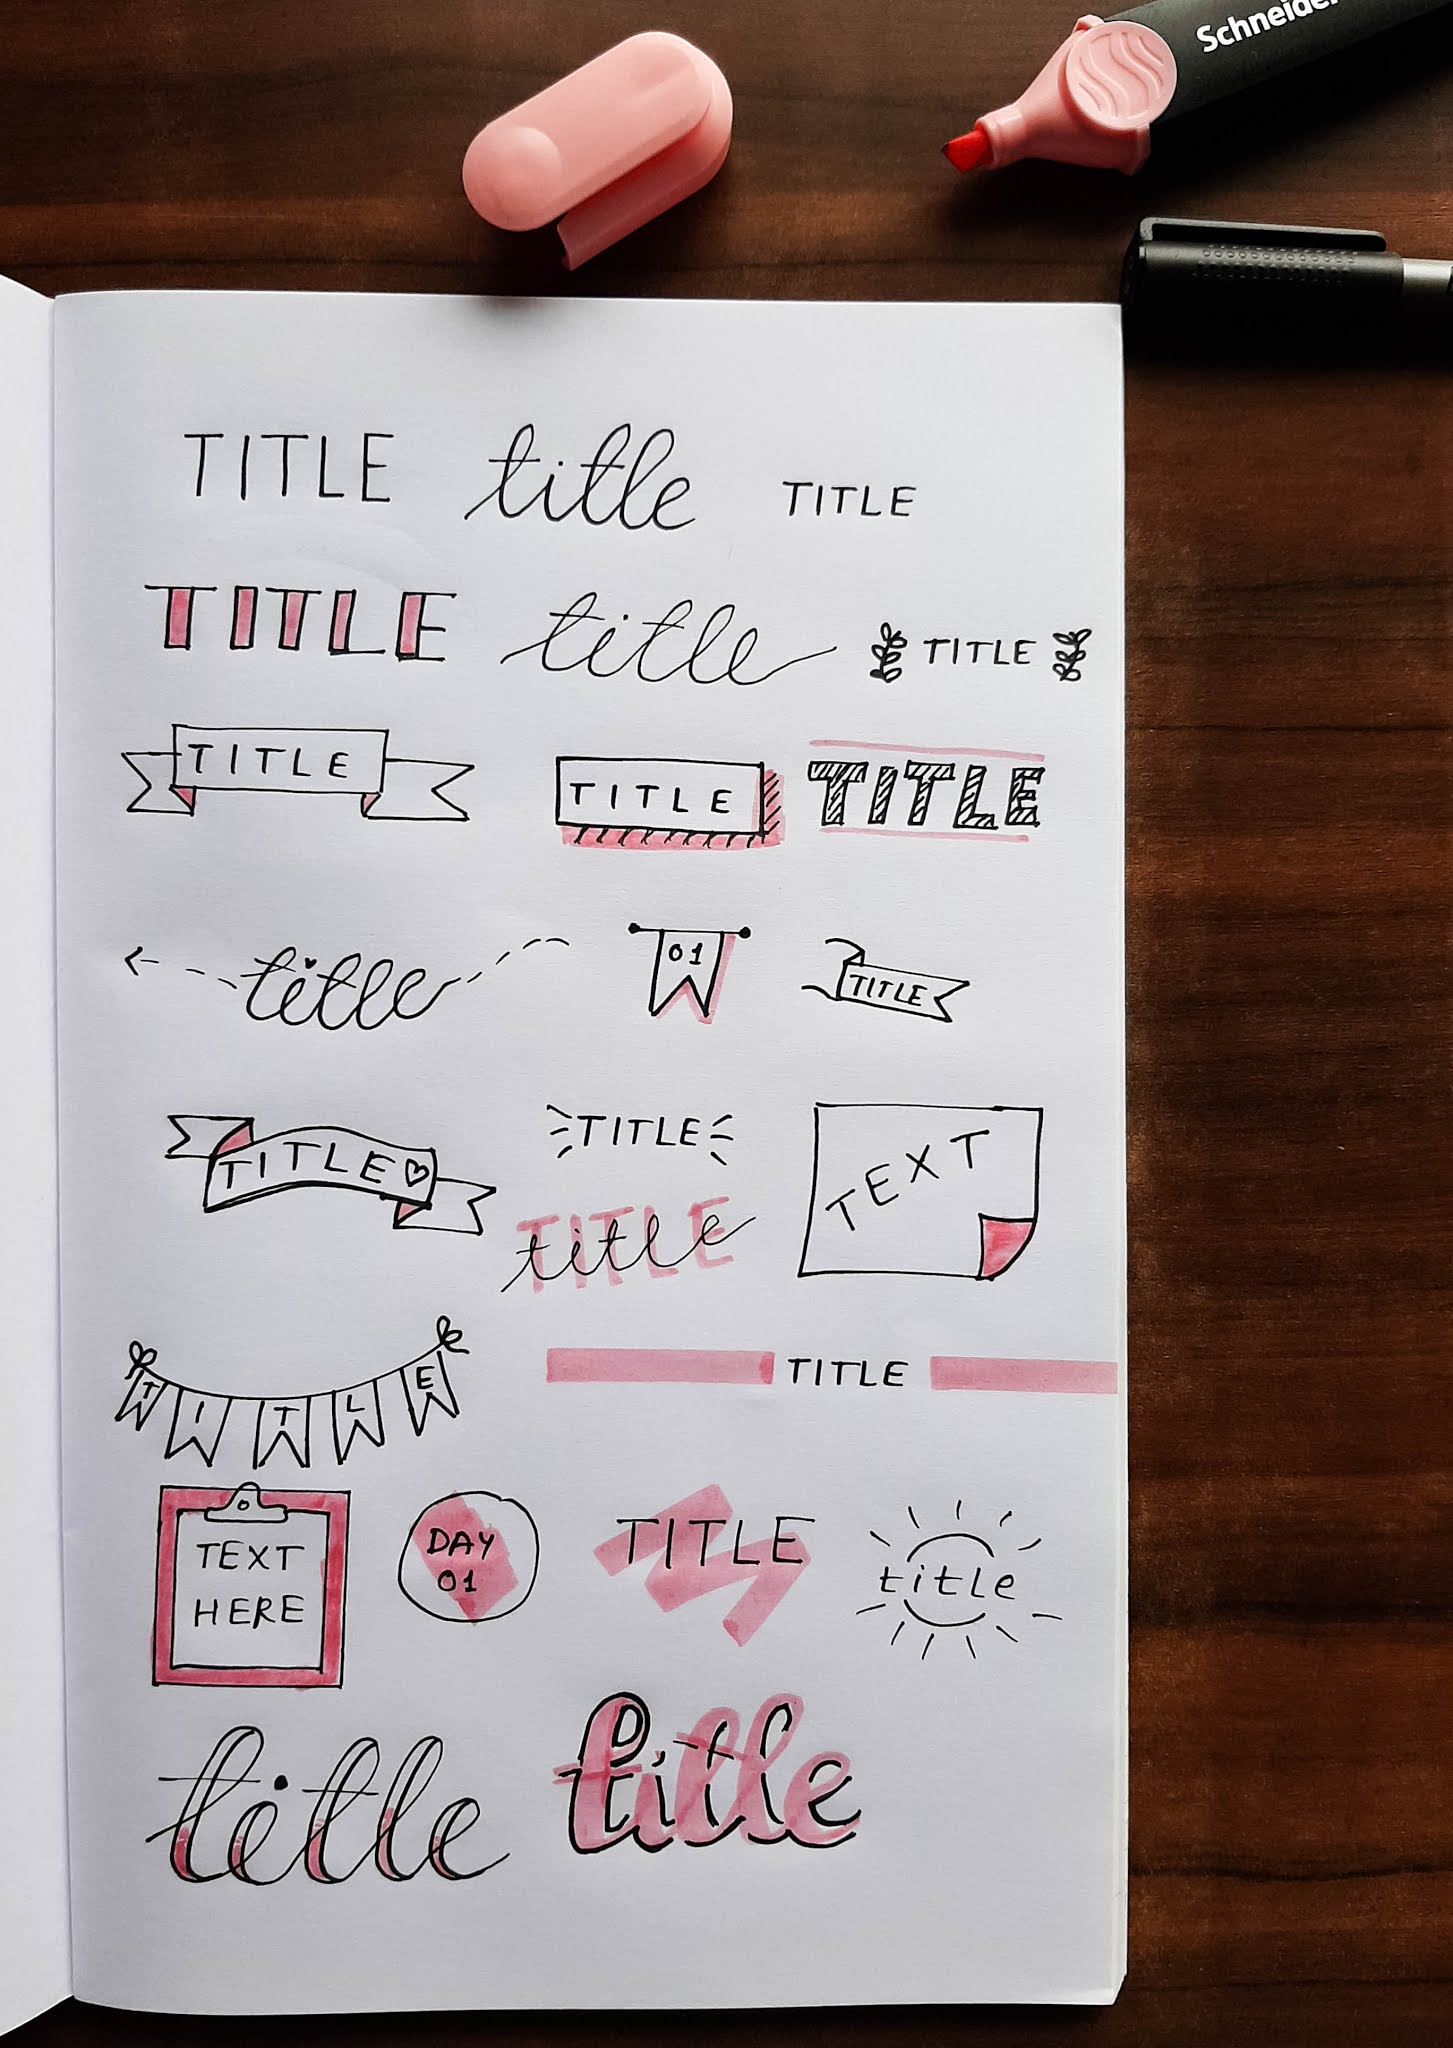 Schneider
TITLE title TITLE
TITLE title TITLE
TITLE TITLE TITLE
title 01 TITLE
TITLE TITLE TEXT
TITLE
title
TITLE TITLE
TEXT
HERE
DAY
01
TITLE title
title title